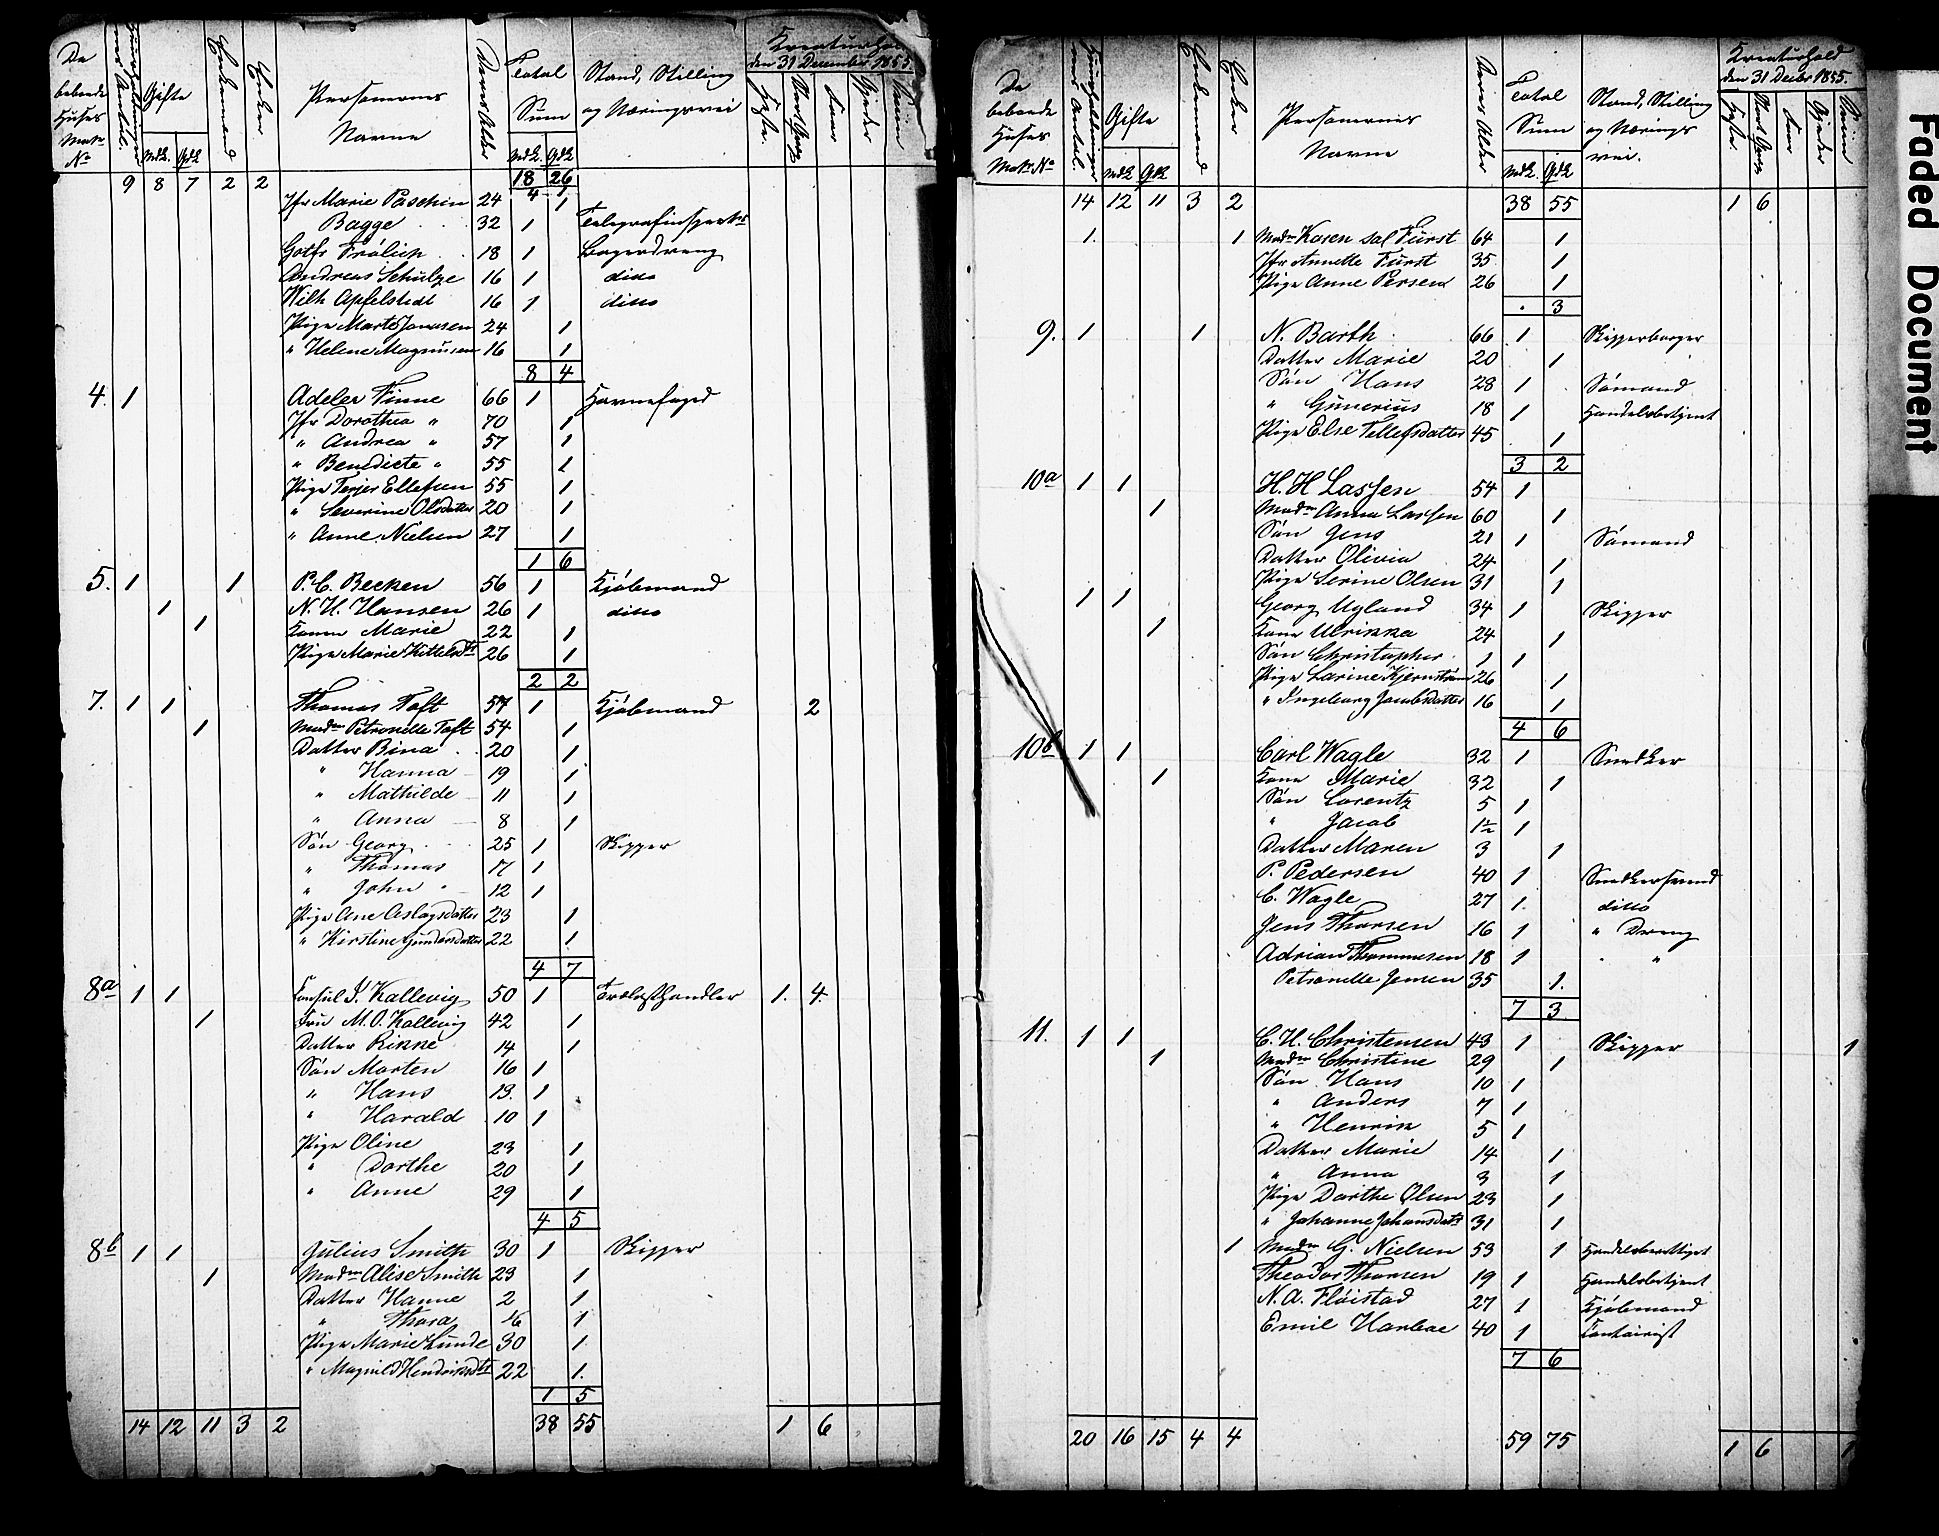 De beboede Huses Matr. No
Huusholdninger med Antal.
Gifte
Mdk. Qdk
Enkemænd
Enker
Personernes Navne
Deres Alder
Total Sum
Mdk. Qdk
Stand, Stilling og Næringsvei
Kreaturhold den 31 December 1855.
Heste.
Stort Qvæg
Faar
Gjeder
Sviin
9 8 7 2 2 18 26
4 1
Jfr Marie Paschin 24 1
Bagge 32 1 Telegrafinspectr
Gotfr Frølich 18 1 Bagerdreng
Andreas Schultze 16 1 ditto
Wilh Apfelstedt 16 1 ditto
Pige Marte Jonassen 24 1
" Helene Magnussen 16 1
8 4
4. 1 Adeler Finne 66 1 Havnefoged
Jfr Dorothea " 70 1
" Andrea " 57 1
" Benedicte " 55 1
Pige Terjer Ellefsen 55 1
" Severine Olsdatter 20 1
" Anne Nielsen 27 1
1 6
5. 1 1 P. C. Becken 56 1 Kjøbmand
1 N. H. Hansen 26 1 ditto
1 Kone Marie 22 1
Pige Marie Kittelsdt 26 1
2 2
7. 1 1 Thomas Toft 57 1 Kjøbmand 2
1 Madm Petronelle Toft 54 1
Datter Bina 20 1
" Hanna 19 1
" Mathilde 11 1
" Anna 8 1
Søn Georg 25 1 Skipper
" Thomas 17 1
" John 12 1
Pige Ane Aslagsdatter 23 1
" Kirstine Gundersdatter 22 1
4 7
8a 1 1 Consul J. Kallevig 50 1 Trælasthandler 1. 4.
1 Fru M. O. Kallevig 42 1
Datter Rikke 14 1
Søn Morten 16 1
" Hans 13. 1
" Harald 10 1
Pige Oline 23 1
" Dorthe 20 1
" Anne 29 1
4 5
8b 1 1 Julius Smith 30 1 Skipper
1 Madm Alise Smith 23 1
Datter Hanne 2 1
" Thora 1
Pige Marie Lunde 30 1
" Magnild Hendriksdtt 22 1.
1 5
14 12 11 3 2 38 55 1 6
De beboede Huses Matr No
Huusholdninger med Antal.
Gifte
Mdk Qdk
Enkemænd
Enker
Personernes Navne
Deres Alder
Total Sum
Mdk. Qdk
Stand, Stilling og Nærings vei.
Kreaturhold den 31 Decbr 1855.
Heste
Stort Qvæg
Faar
Gjeder
Sviin
14 12 11 3 2 38 55 1 6
1. 1 Madm Karen sal Fürst 64 1
Jfr Annette Fürst 35 1
Pige Anne Persen 26 1
. 3
9. 1 1 N. Barth 66 1 Skipperborger
Datter Marie 20 1
Søn Hans 28 1 Sømand
" Gunerius 18 1 Handelsbetjent
Pige Else Tellefsdatter 45 1
3 2
10a 1 1 H. H Lassen 54 1
1 Madm Anna Lassen 60 1
Søn Jens 21 1 Sømand
Datter Olivia 24 1
Pige Serine Olsen 31 1
1 1 Georg Ugland 34 1 Skipper
1 Kone Ulrikka 24 1
Søn Christopher 1 1
Pige Larine Kjernstrøm 26 1
" Ingeborg Jacobsdatter 16 1
4 6
10b 1 1 Carl Wagle 32 1 Snedker
1 Kone Marie 32 1
Søn Lorentz 5 1
" Jacob 1½ 1
Datter Maren 3 1
P. Pedersen 40 1 Snedkersvend
C. Wagle 27 1. ditto
Jens Thorsen 16 1 " Dreng
Adrian Thommesen 18 1 " "
Petronelle Jensen 35 1.
7 3
11. 1 1 C. H. Christensen 43 1 Skipper 1
1 Madm Christine 29 1
Søn Hans 10 1
" Anders 7 1
" Henrik 5 1
Datter Marie 14 1
" Anna 3 1
Pige Dorthe Olsen 23 1
" Johanne Johansdatt 31 1
1 Madm G. Nielsen 53 1 Handelsberettiget
Theodor Thorsen 19 1 Handelsbetjent
N. A. Fløistad 27 1 Kjøbmand
Emil Harboe 40 1 Contoirist
7 6
20 16 15 4 4 59 75 1 6 1
Faded Document